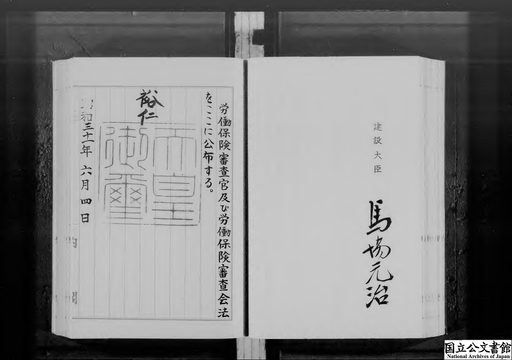 建設大臣
馬場元治
労働保険審査官及び労働保険審査会法
をここに公布する。
裕仁
天皇
御璽
昭和三十一年六月四日
国立公文書館
National Archives of Japan